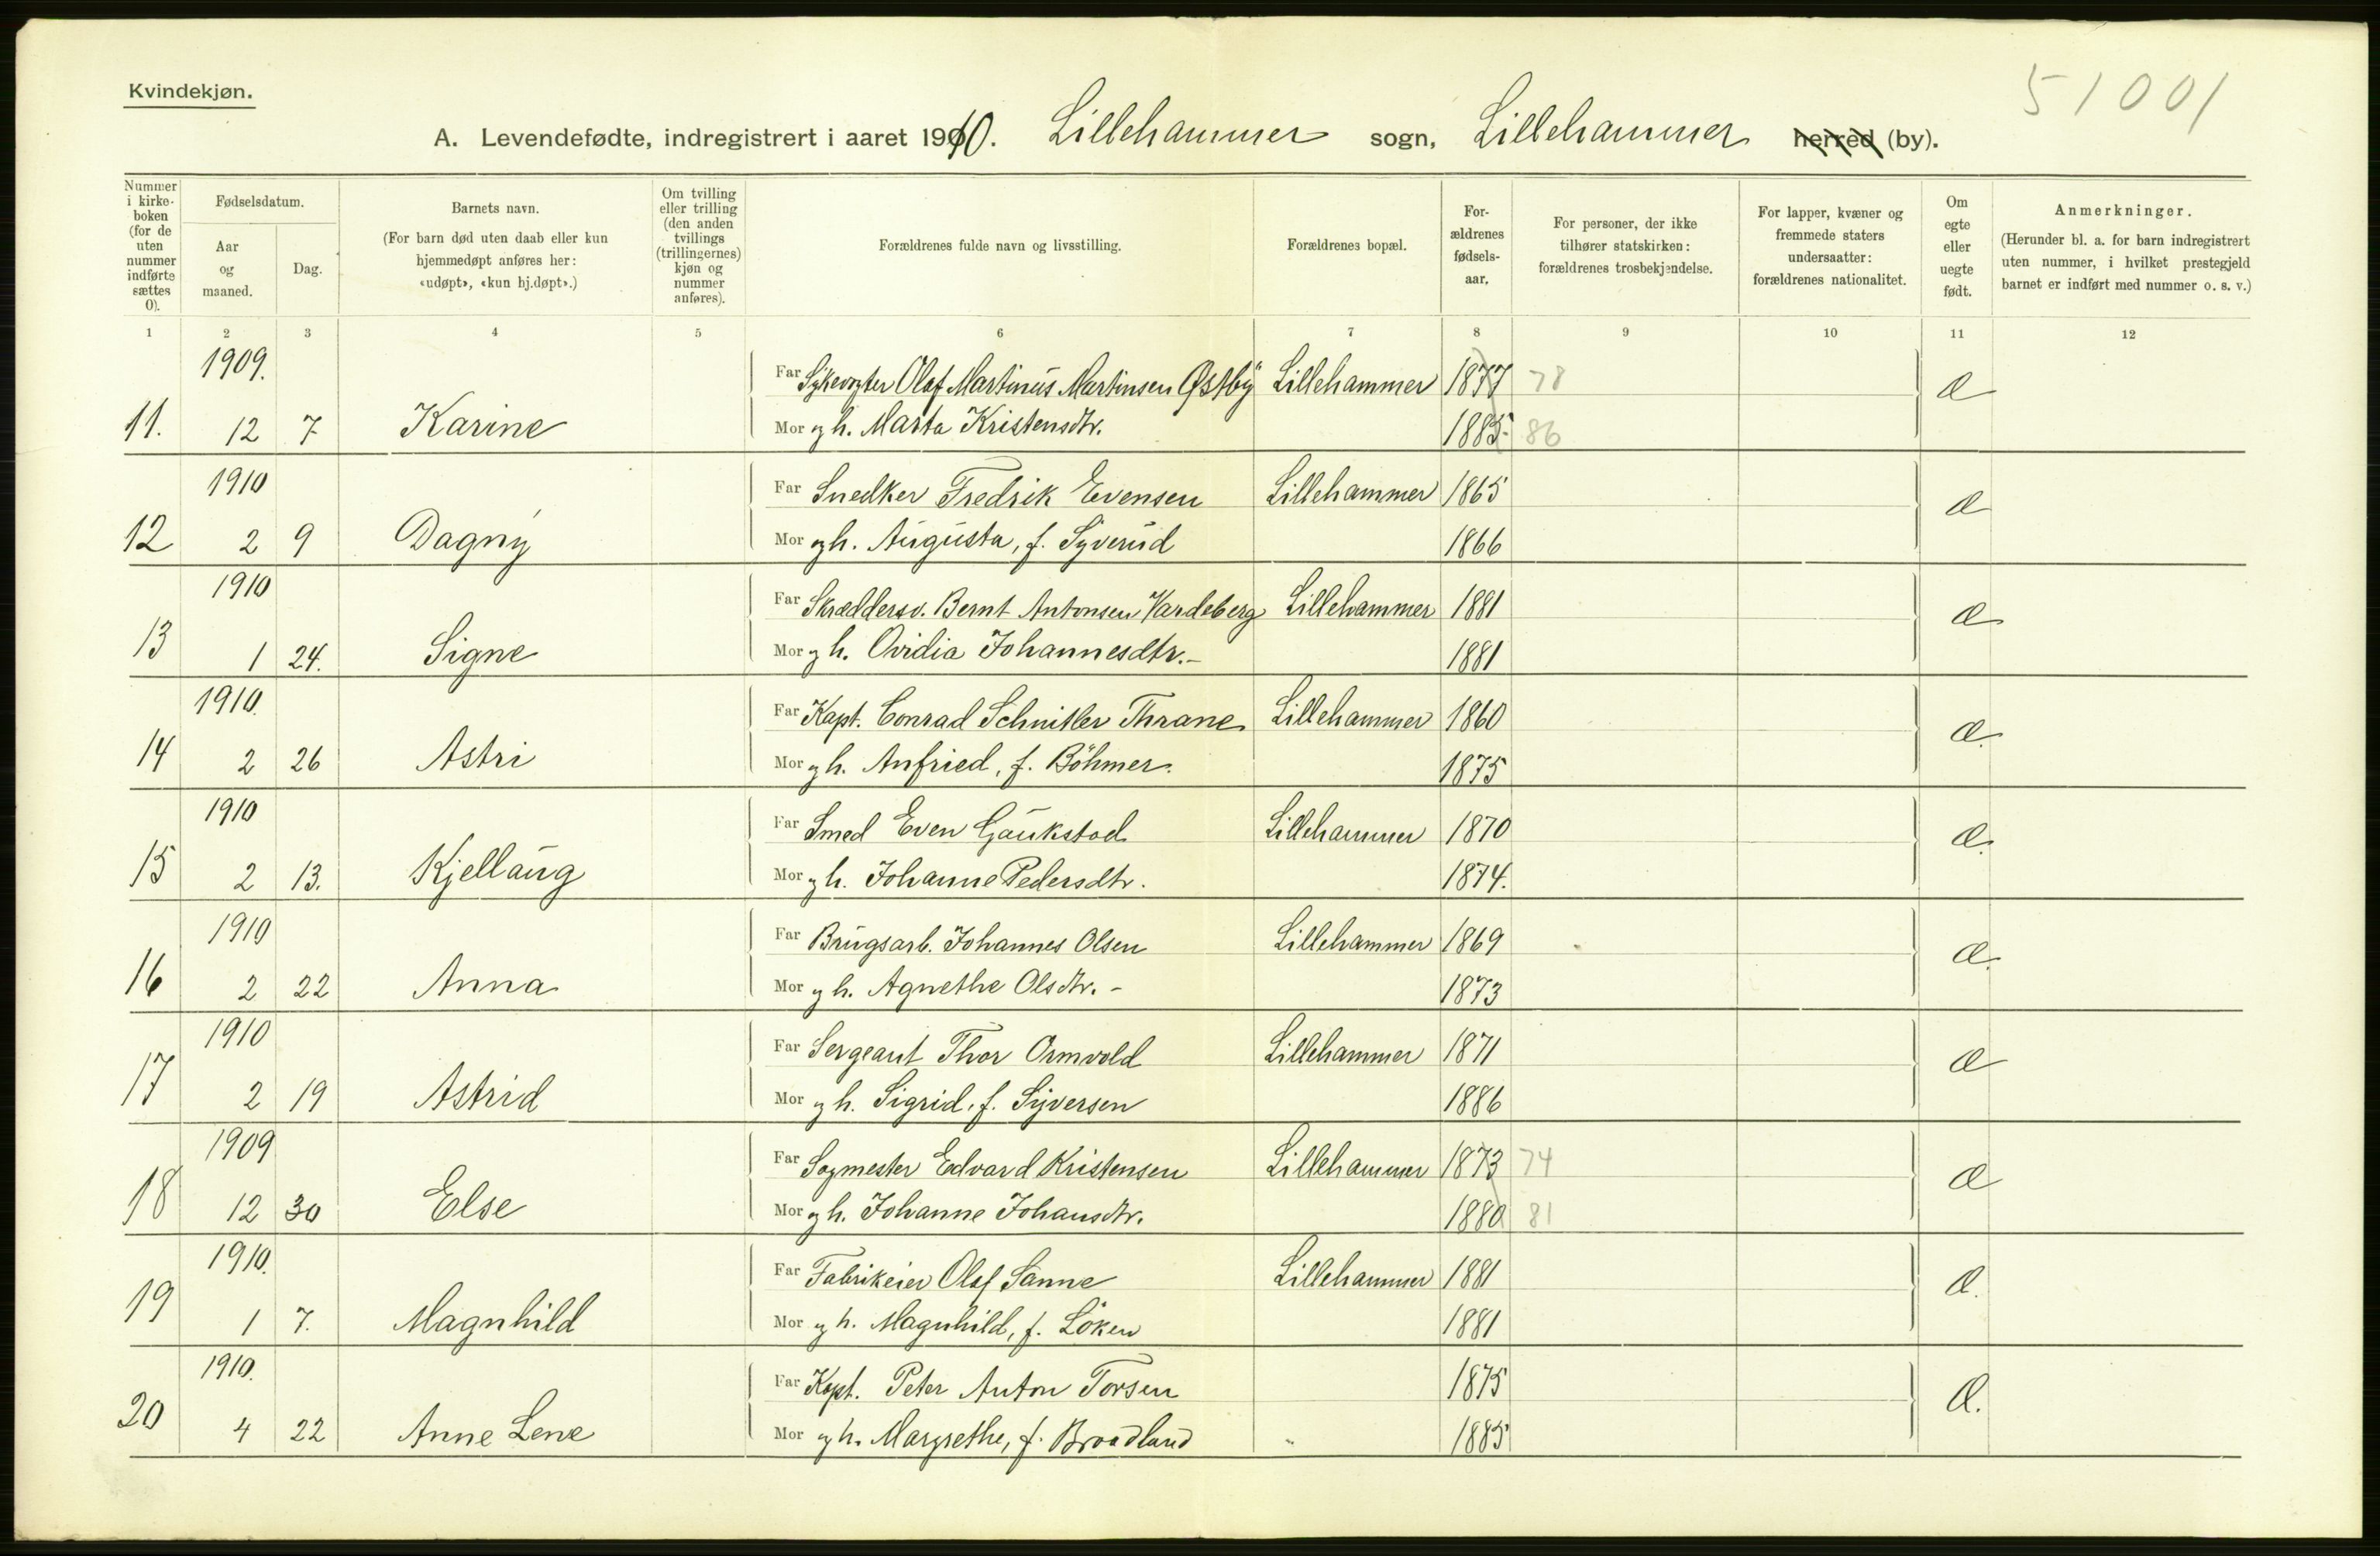 Kvindekjøn.
51001
A. Levendefødte, indregistrert i aaret 1910. Lillehammer sogn, Lillehammer herred (by).
Nummer i kirkeboken (for de uten nummer indførte sættes 0).
Fødselsdatum.
Aar og maaned.
Dag.
Barnets navn.
(For barn død uten daab eller kun hjemmedøpt anføres her: «udøpt», «kun hj.døpt».)
Om tvilling eller trilling (den anden tvillings (trillingernes) kjøn og nummer anføres).
Forældrenes fulde navn og livsstilling.
Forældrenes bopæl.
Forældrenes fødselsaar.
For personer, der ikke tilhører statskirken: forældrenes trosbekjendelse.
For lapper, kvæner og fremmede staters undersaatter: forældrenes nationalitet.
Om egte eller uegte født.
Anmerkninger.
(Herunder bl. a. for barn indregistrert uten nummer, i hvilket prestegjeld barnet er indført med nummer o. s. v.)
1 2 3 4 5 6 7 8 9 10 11 12
1909. Far Sykevogter Olaf Martinus Martinsen Østby Lillehammer 1877 78 Æ
11. 12 7 Karine Mor og h. Marta Kristensdtr. 1885. 86
1910 Far Snedker Fredrik Evensen Lillehammer 1865 Æ
12 2 9 Dagny Mor og h. Augusta, f. Syverud 1866
1910 Far Skræddersv. Bernt Antonsen Vardeberg Lillehammer 1881 Æ
13 1 24. Signe Mor og h. Ovidia Johannesdtr. - 1881
1910. Far Kapt. Conrad Schnitler Thrane Lillehammer 1860 Æ.
14 2 26 Astri Mor og h. Anfried, f. Böhmer. 1875
1910 Far Smed Even Gaukstad Lillehammer 1870 Æ.
15 2 13. Kjellaug Mor og h. Johanne Pedersdtr. 1874.
1910 Far Brugsarb. Johannes Olsen Lillehammer 1869 Æ.
16 2 22 Anna Mor og h. Agnethe Olsdtr. - 1873
1910 Far Sergeant Thor Ormvold Lillehammer 1871 Æ
17 2 19 Astrid Mor og h. Sigrid, f. Syversen 1886
1909 Far Sogmester Edvard Kristensen Lillehammer 1873 74 Æ
18 12 30 Else Mor og h. Johanne Johansdtr. 1880 81
1910. Far Fabrikeier Olaf Sanne Lillehammer 1881 Æ.
19 1 7. Magnhild Mor og h. Magnhild, f. Löken 1881
1910. Far Kapt. Peter Anton Torsen 1875 Æ.
20 4 22 Anne Lene Mor og h. Margrethe, f. Broadland " 1885